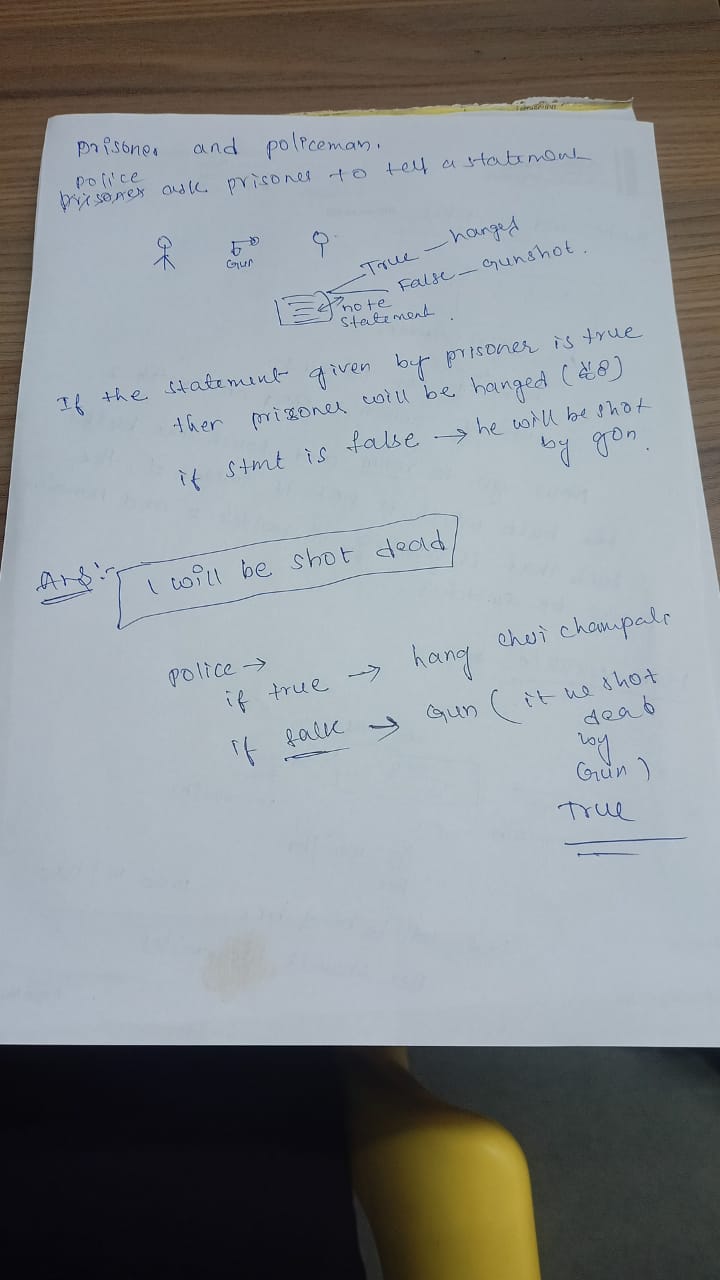 prisoner and policeman.
police
prisoner ask prisoner to tell a statement
Gun
True – hanged
False – Gunshot.
note
statement.
If the statement given by prisoner is true
then prisoner will be hanged
if stmt is false → he will be shot
by gon.
Ans:-
I will be shot dead
police →
if true → hang
if false → Gun ( it we shot
dead
by
Gun )
True